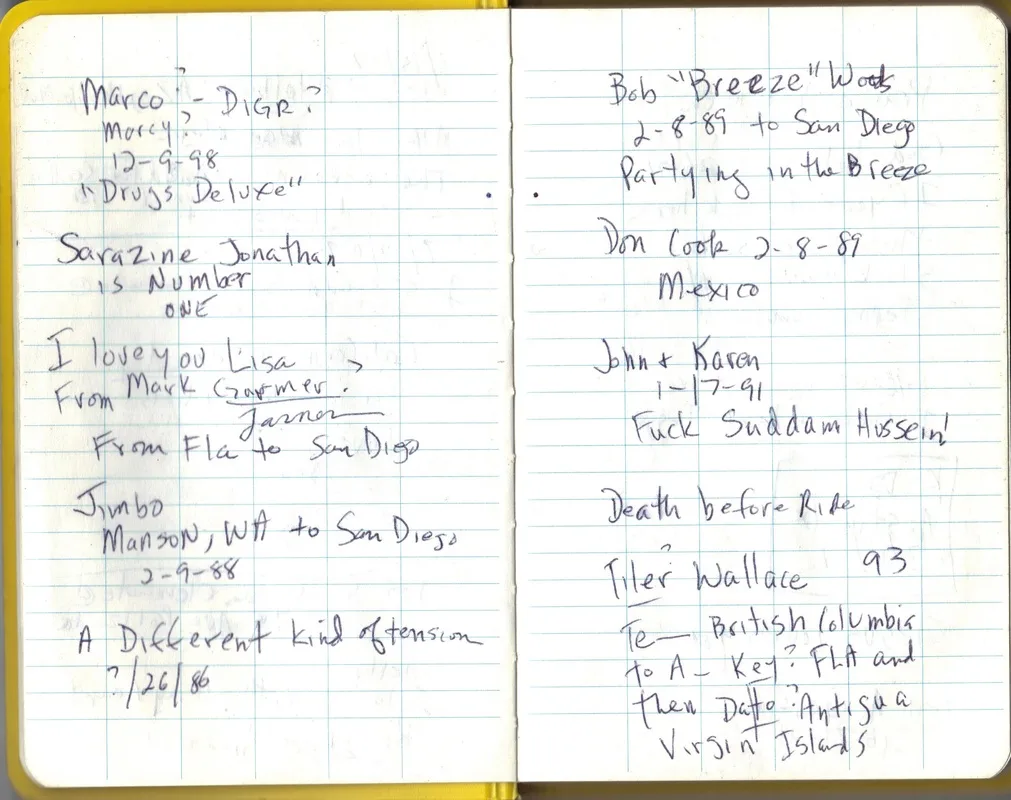 Marco ? - DIGR?
Marcy?
12-9-98
"Drugs Deluxe"
Sarazine Jonathan
is Number
ONE
I love you Lisa
From Mark Garmer.
Jarner
From Fla to San Diego
Jimbo
Manson, WA to San Diego
2-9-88
A Different kind of tension
?/26/86
Bob "Breeze" Woods
2-8-89 to San Diego
Partying in the Breeze
Don Cook 2-8-89
Mexico
John + Karen
1-17-91
Fuck Suddam Hussein!
Death before Ride
Tiler? Wallace 93
Te— British Columbia
to A— Key? FLA and
then Datto? Antigua
Virgin Islands